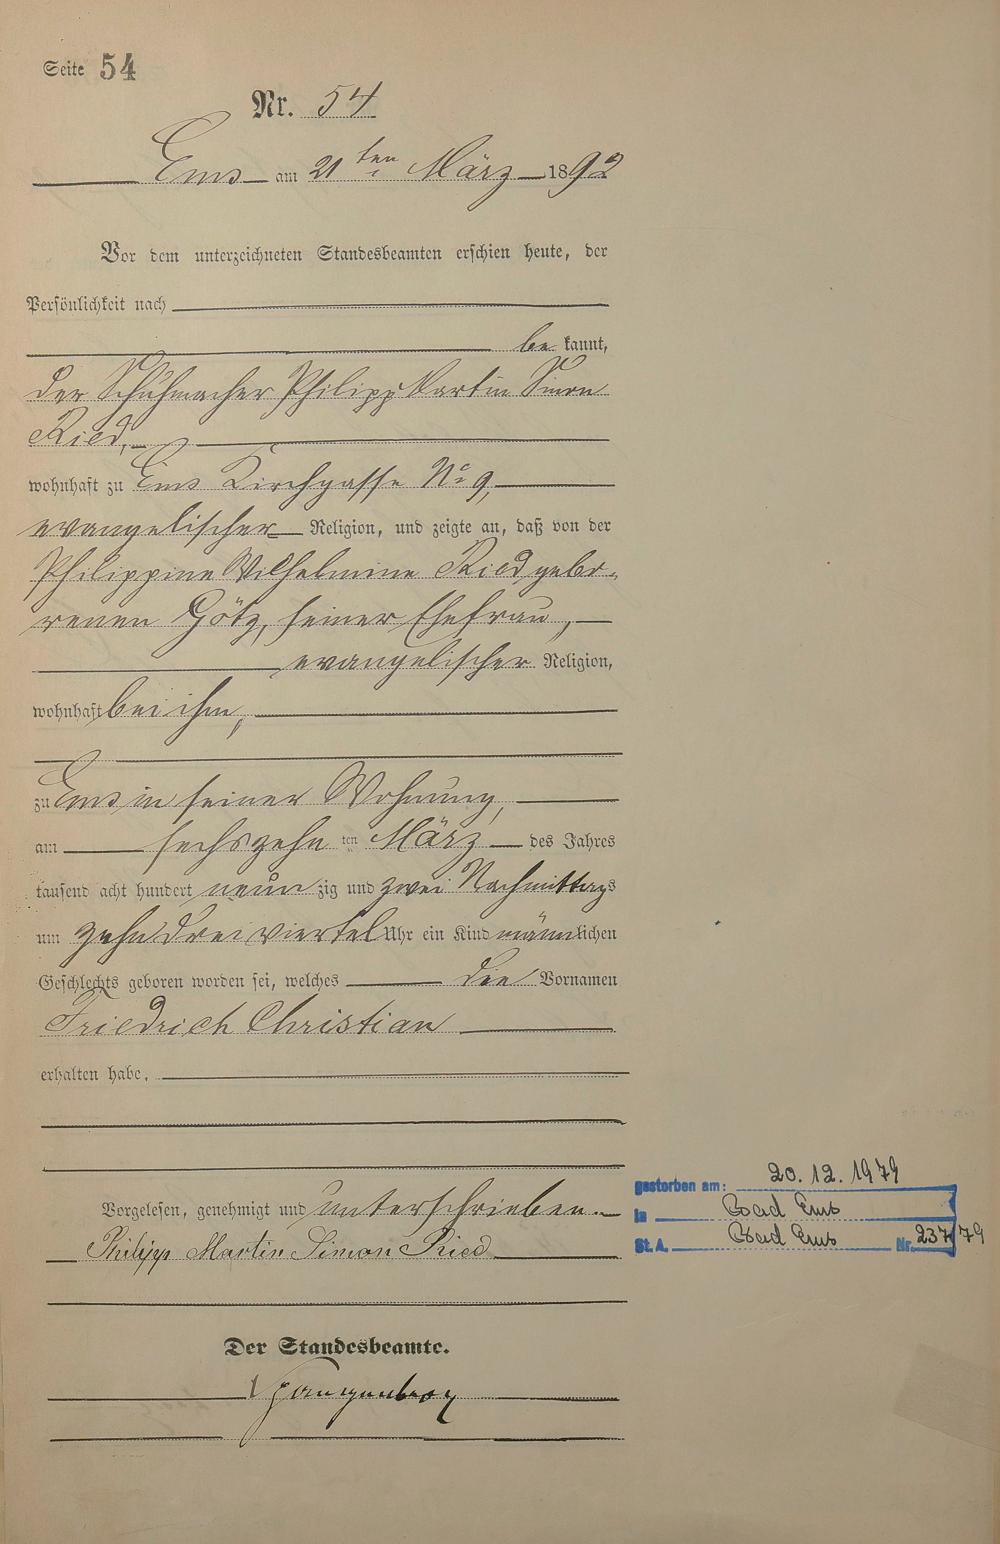 Seite 54
Nr. 54
Ems am 21ten März 1892
Vor dem unterzeichneten Standesbeamten erschien heute, der
Persönlichkeit nach
be kannt,
der Schuhmacher Philipp Martin Simon
Ried,
wohnhaft zu Ems Kirchgasse No 9,
evangelischer Religion, und zeigte an, daß von der
Philippine Wilhelmine Ried gebo-
renen Götz, seiner Ehefrau,
evangelischer Religion,
wohnhaft bei ihm,
zu Ems in seiner Wohnung,
am sechszehn ten März des Jahres
tausend acht hundert neun zig und zwei Nachmittags
um zehn drei viertel Uhr ein Kind männlichen
Geschlechts geboren worden sei, welches die Vornamen
Friedrich Christian
erhalten habe.
Vorgelesen, genehmigt und unterschrieben.
Philipp Martin Simon Ried
Der Standesbeamte.
gestorben am: 20.12.1979
in Bad Ems
St.A. Bad Ems Nr. 237/79